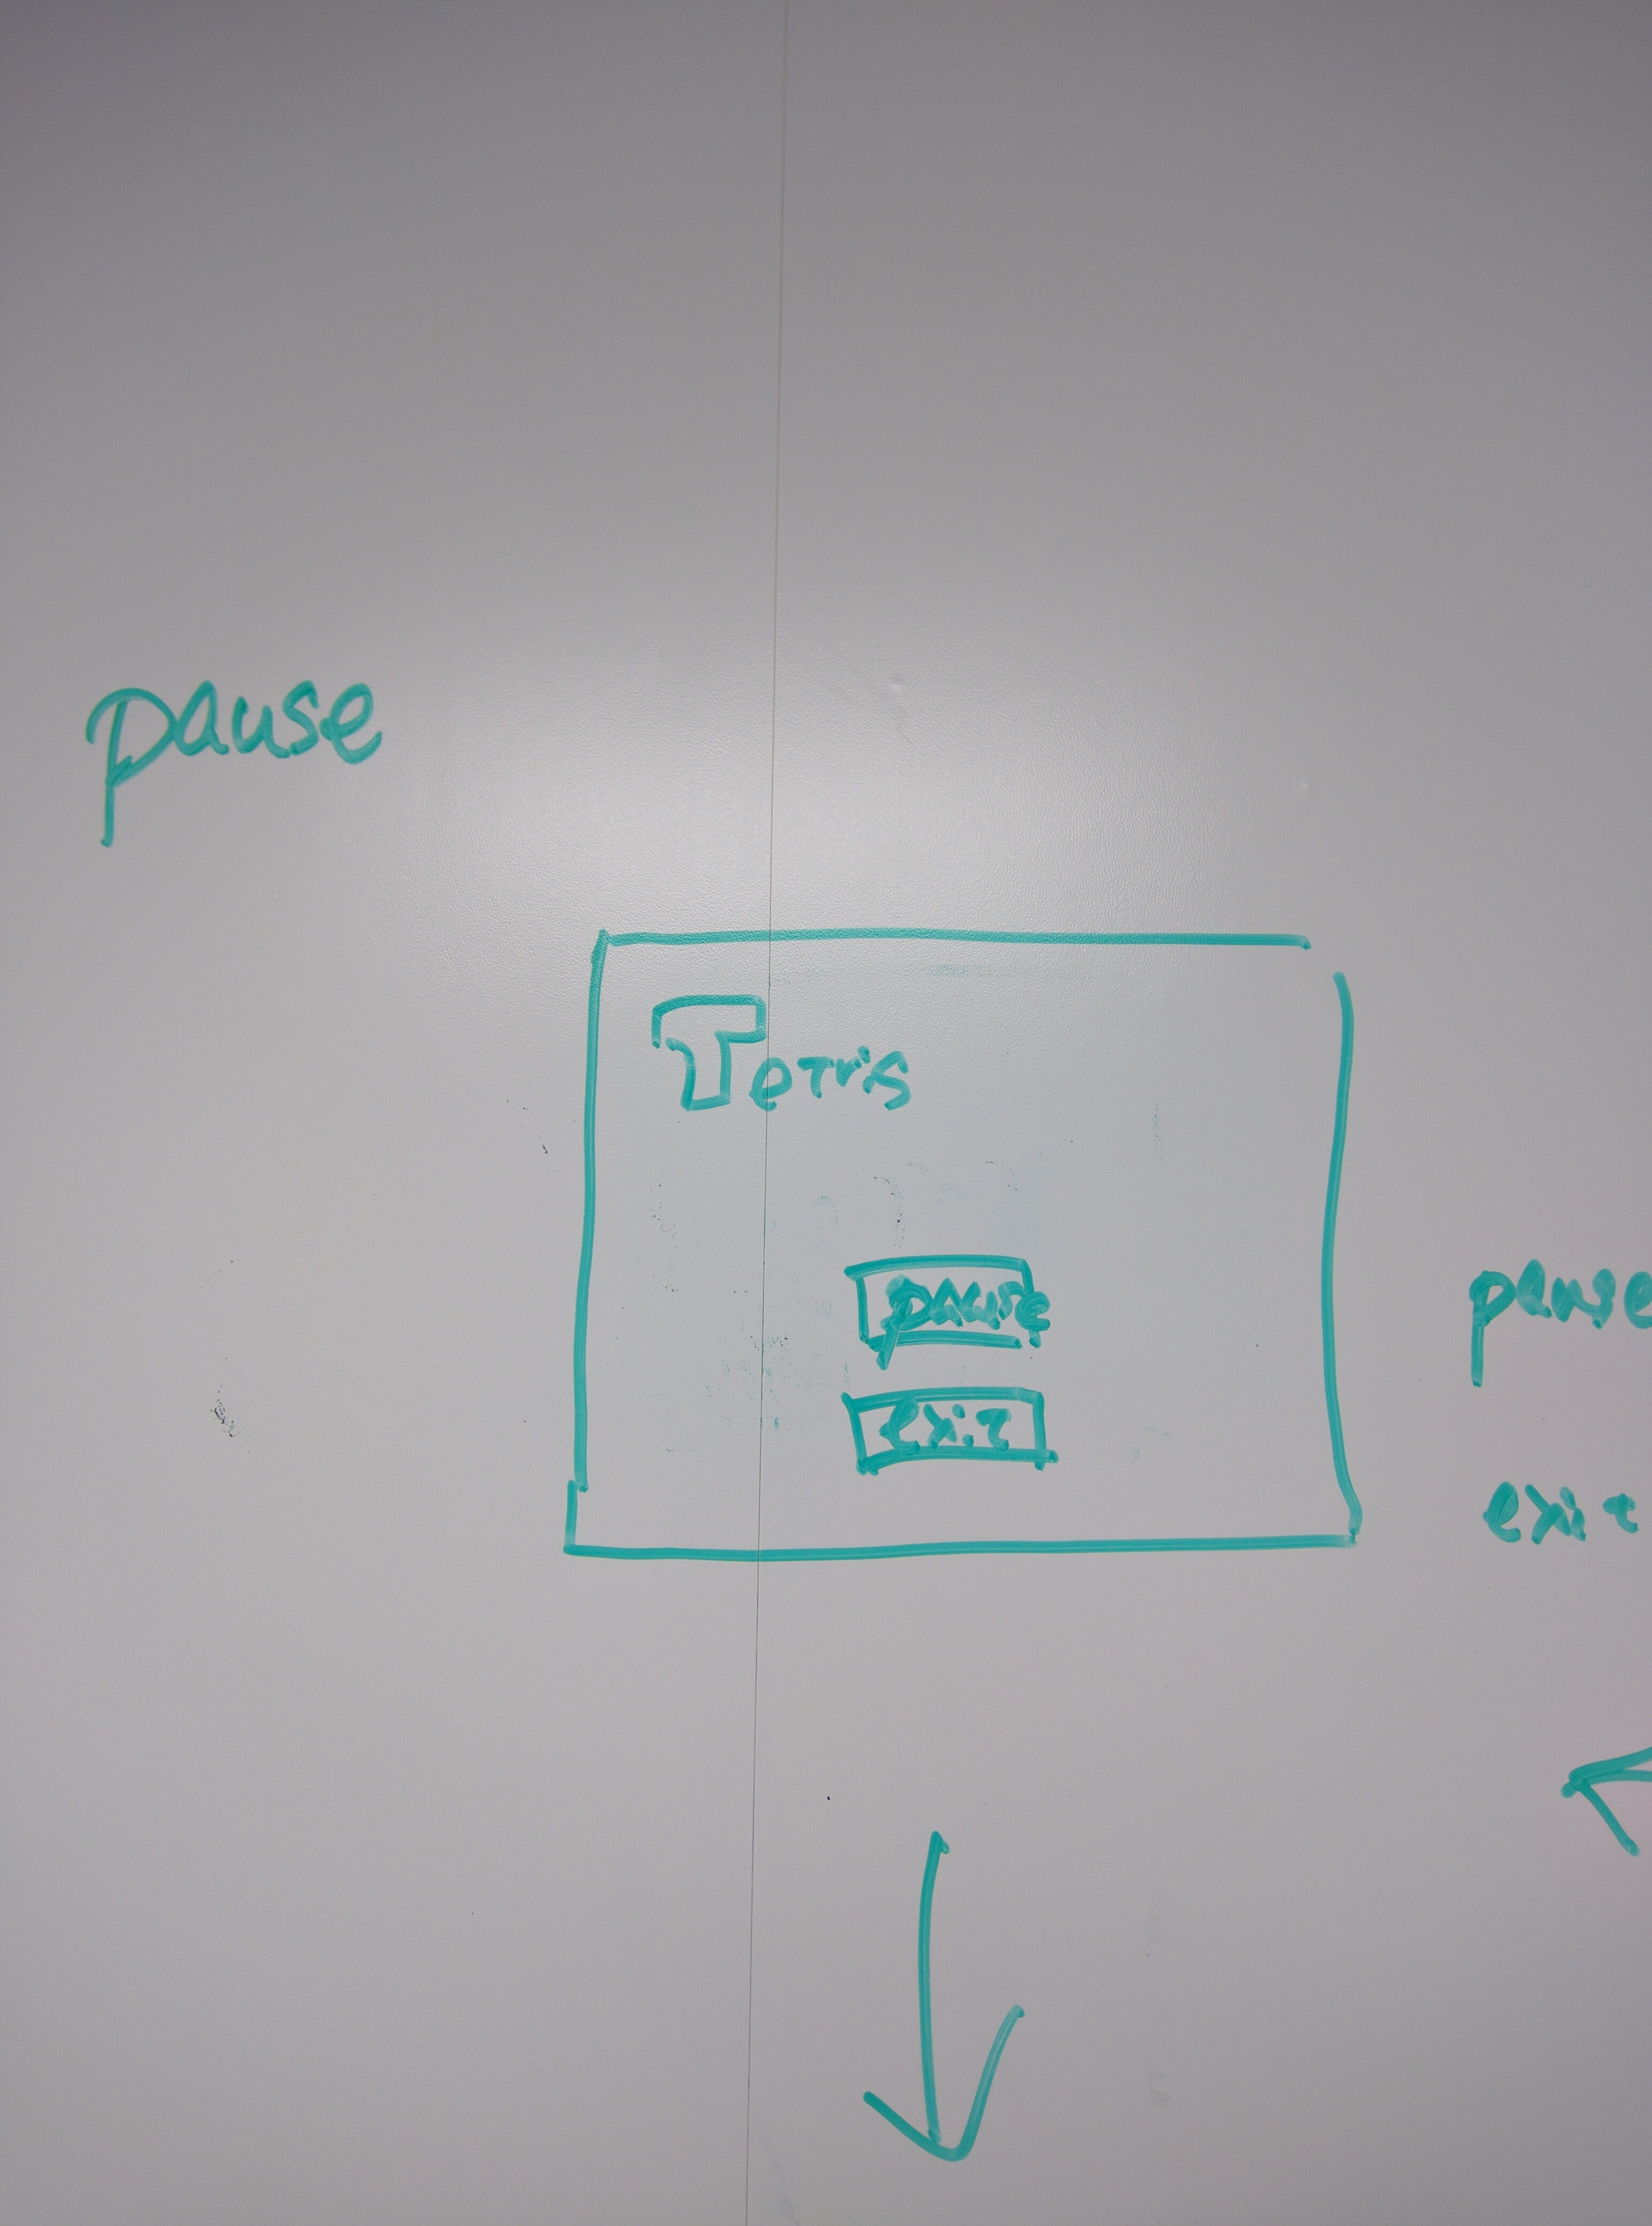 pause
Tetris
pause
exit
pause
exit